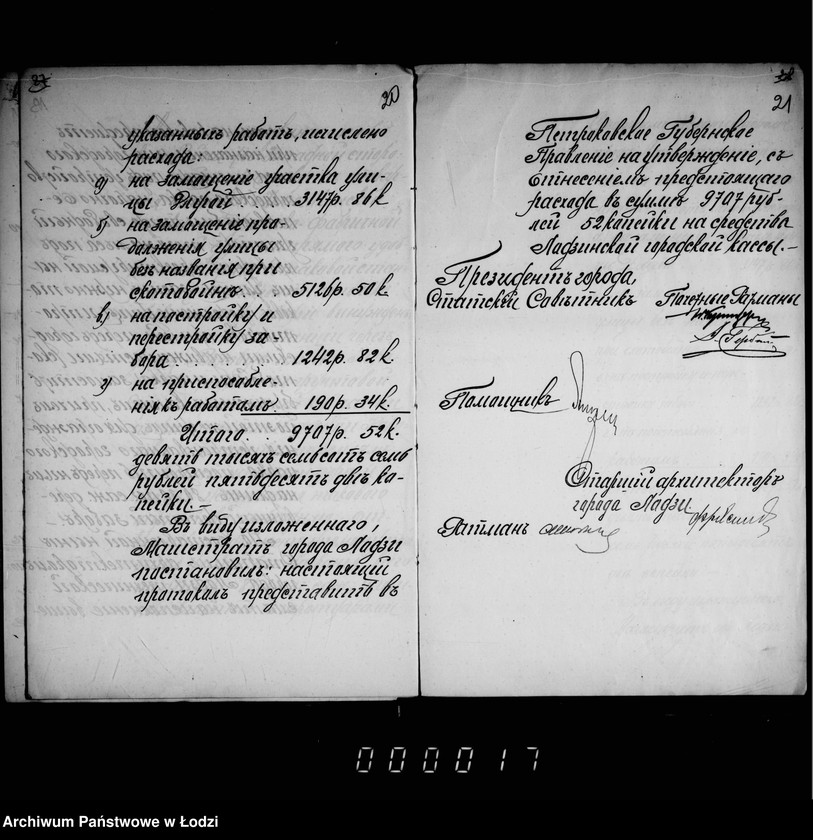 37
20
указанныхъ работъ, исчислено
расхода:
а) на замощеніе участка ули-
цы Глухой . 3147р. 86к.
б) на замощеніе про-
долженія улицы
безъ названія при
скотобойнѣ . . 5126р. 50к.
в) на постройку и
перестройку за-
бора . . . . . 1242р. 82к.
г) на приспособле-
нія къ работамъ 190р. 34к.
Итого . . 9707р. 52к.
девять тысячъ семьсотъ семь
рублей пятьдесятъ двѣ ко-
пейки. —
Въ виду изложеннаго,
Магистратъ города Лодзи
постановилъ: настоящій
протоколъ представить въ
38
21
Петроковское Губернское
Правленіе на утвержденіе, съ
отнесеніемъ предстоящаго
расхода въ суммѣ 9707 руб-
лей 52 копейки на средства
Лодзинской городской кассы. —
Президентъ города,
Статскій Совѣтникъ
Почетные Ратманы
Помощникъ
Старшій архитекторъ
города Лодзи
Ратманъ
000017
Archiwum Państwowe w Łodzi